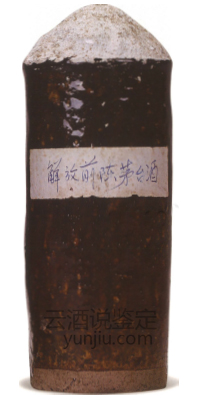 解放前 茅台酒
云酒说鉴定
yunjiu.com